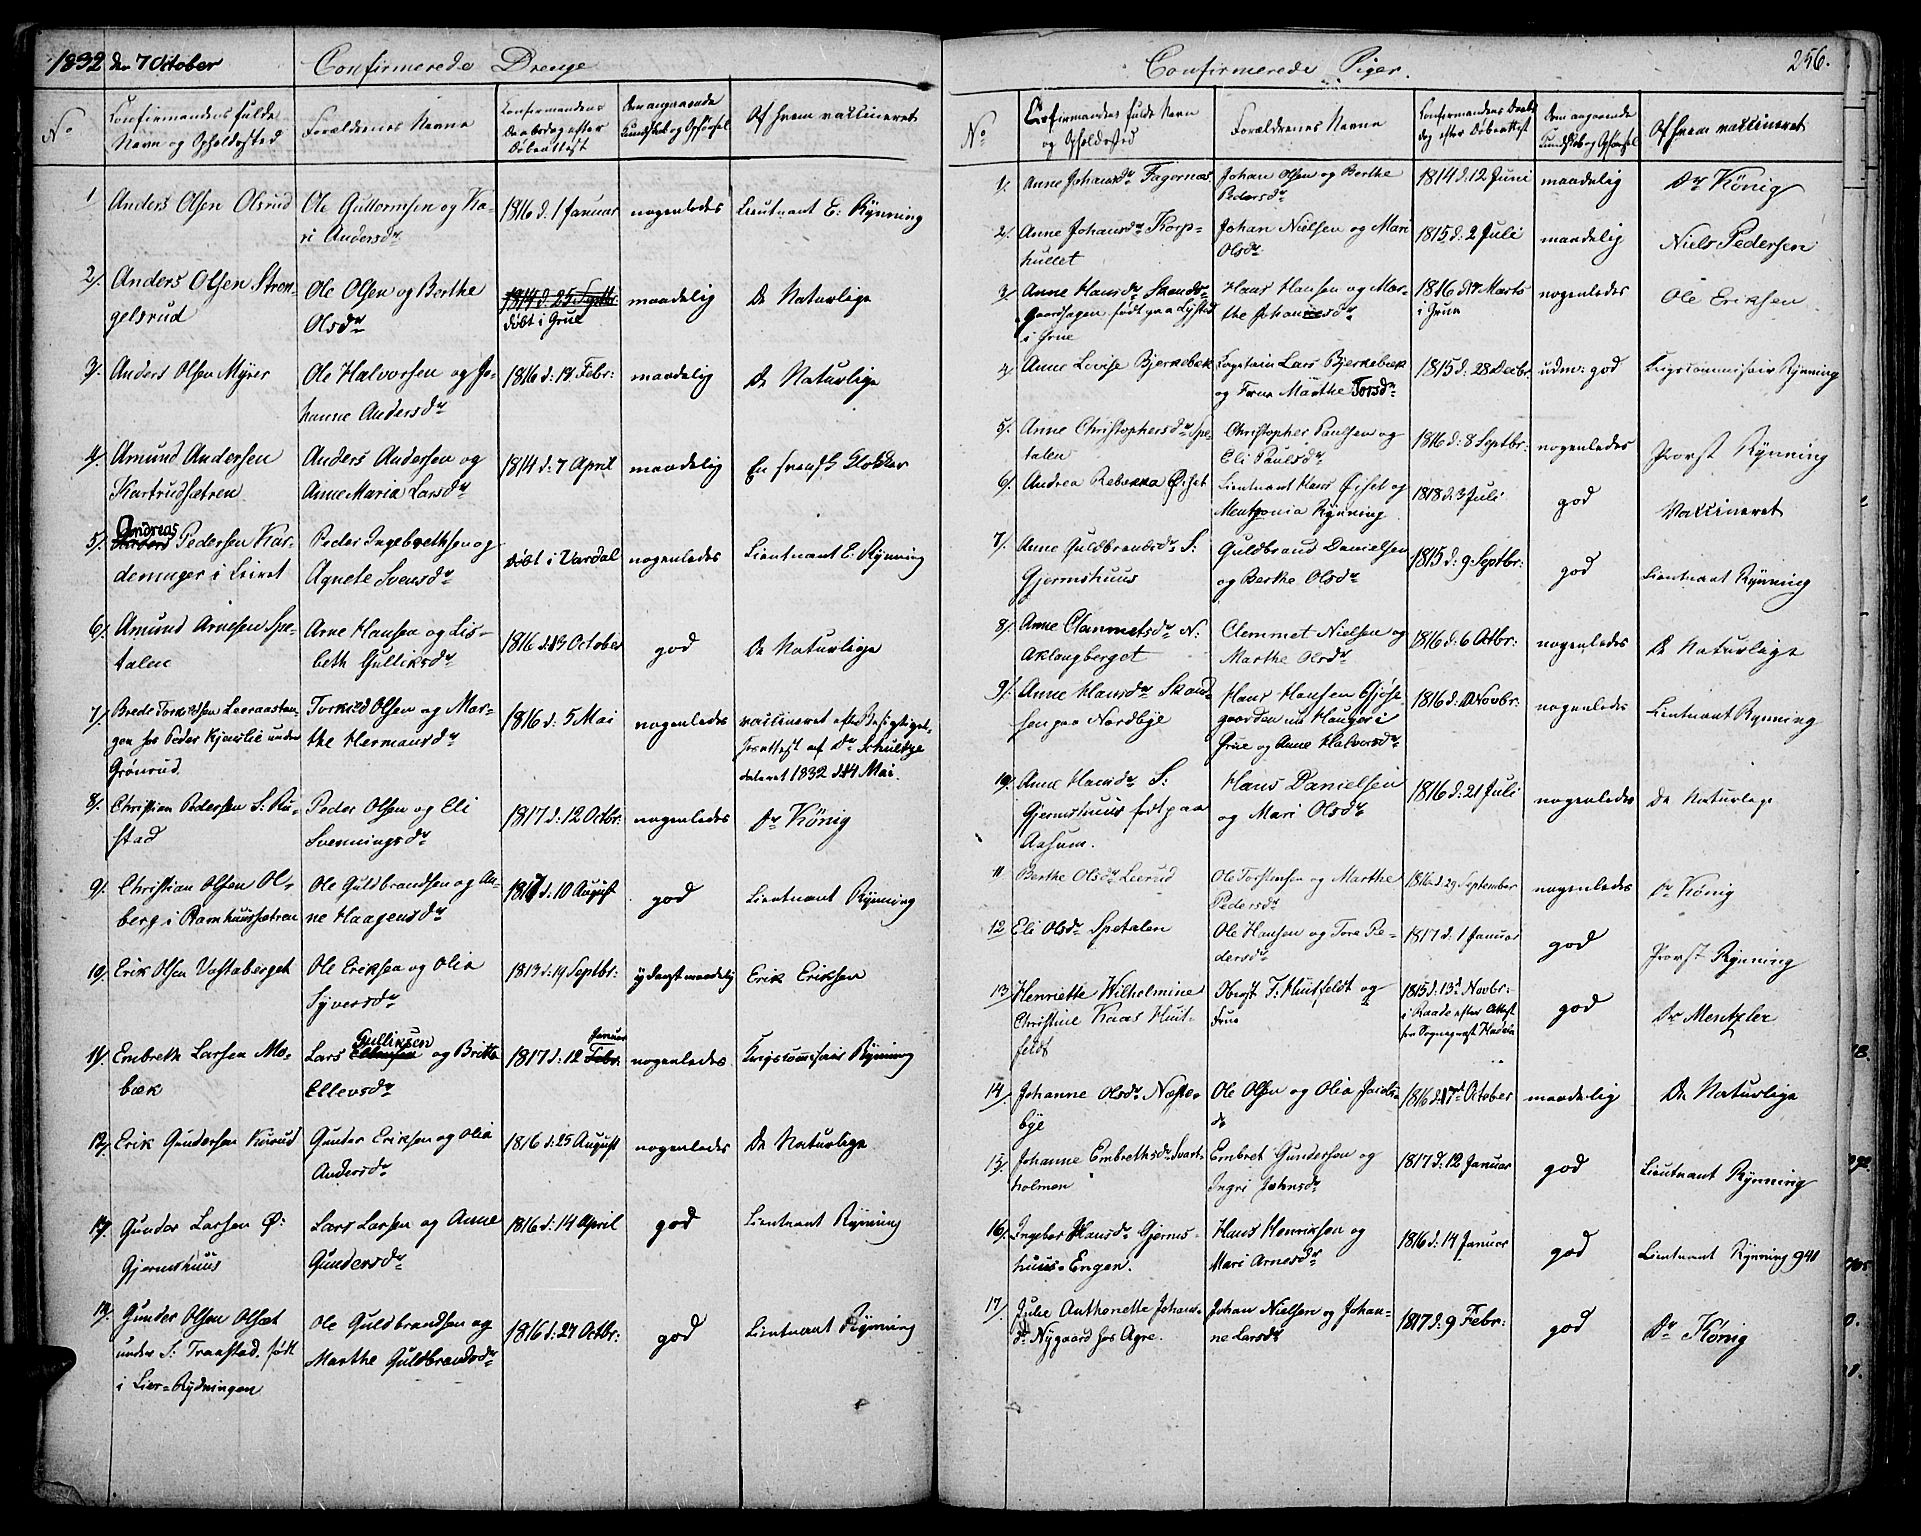 1832 den 7 October
Confirmerede Drenge
No
Confirmandens fulde
Navn og Opholdssted
Forældrenes Navne
Confirmandens
Daabsdag efter
Døbeattest
Dom angaaende
Kundskab og Opførsel
Af hvem vaccineret
1
Anders Olsen Olsrud
Ole Guttormsen og Ka-
ri Andersdr
1816 d: 1 Januar
nogenledes
Lieutnant E: Rynning
2/.
Anders Olsen Stren-
gelsrud
Ole Olsen og Berthe
Olsdr
1814 d 25 Septbr:
døbt i Grue
maadelig
De Naturlige
3/.
Anders Olsen Myrer
Ole Halvorsen og Jo-
hanne Andersdr
1816 d: 18 Febr:
maadelig
De Naturlige
4/.
Amund Andersen
Kartrudsætren
Anders Andersen og
Anne Maria Larsdr
1814 d: 7 April
maadelig
En svensk Klokker
5/.
Andreas
Pedersen Kar-
demager i Leiret
Peder Ingebrethsen og
Agnete Svensdr
døbt i Vardal
nogenledes
Lieutnant E. Rynning
6/.
Amund Arnesen Spe-
talen
Arne Hansen og Lis-
beth Gulliksdr
1816 d 13 October
god
De Naturlige
7/
Brede Torkildsen Leeraasten-
gen hos Peder Kjernlie under
Grønrud
Torkild Olsen og Mar-
the Hermansdr
1816 d: 5 Mai
nogenledes
vaccineret efter Besigtigel-
sesattest af Dr Schultze
dateret 1832 d 14 Mai.
8/.
Christian Pedersen S: Ru-
stad
Peder Olsen og Eli
Svenningsdr
1817 d: 12 Octbr:
nogenledes
Dr König
9/.
Christian Olsen Ol-
berg i Ramhuussætren
Ole Guldbrandsen og An-
ne Haagensdr
1817 d: 10 August
god
Lieutnant Rynning
10/.
Erik Olsen Vestaberget
Ole Eriksen og Olia
Syversdr
1813 d: 19 Septbr:
yderst maadelig
Erik Eriksen
11/.
Embreth Larsen Mo-
bæk
Gulliksen
Lars Ellensen og Britte
Ellevsdr
Januar
1817 d: 12 Febr:
nogenledes
Krigscommisair Rynning
12/.
Erik Gundersen Kurud
Gunder Eriksen og Olia
Andersdr
1816 d: 25 August
nogenledes
De Naturlige
13/.
Gunder Larsen Ø:
Gjermshuus
Lars Larsen og Anne
Gundersdr
1816 d: 14 April
god
Lieutnant Rynning
14/.
Gunder Olsen Olset
under S: Traastad. født
i Lier-Rydningen
Ole Guldbrandsen og
Marthe Guldbrandsdr
1816 d: 27 Octbr:
god
Lieutnant Rynning
Confirmerede Piger.
256.
No
Confirmandens fulde Navn
og Opholdssted
Forældrenes Navne
Confirmandens Daabs-
dag efter Døbeattest
Dom angaaende
Kundskab og Opførsel
Af hvem vaccineret
1/.
Anne Johansdr Fagernæs
Johan Olsen og Berthe
Pedersdr
1814 d: 12 Juni
maadelig
Dr König
2/.
Anne Johansdr Korp-
hullet
Johan Nielsen og Mari
Olsdr
1815 d: 2 Juli
maadelig
Niels Pedersen
3/.
Anne Hansdr Skands-
gaardhagen født paa Lysted
i Grue
Hans Hansen og Mar-
the Johannesdr
1816 d 17 Marts
i Grue
nogenledes
Ole Eriksen
4/.
Anne Lovise Bjerkebek
Capitain Lars Bjerkebek
og Frue Marthe Torsdr
1815 d: 28 Decbr.
udm: god
Krigscommisair Rynning
5/.
Anne Christophersdr Spe-
talen
Christopher Paulsen og
Eli Paulsdr
1816 d: 8 Septbr:
nogenledes
Provst Rynning
6/.
Andrea Rebekka Øiset
Lieutnant Hans Øiset og
Mentzonia Rynning
1818 d: 3 Juli
god
Vaccineret
7/.
Anne Guldbrandsdr S:
Gjermshuus
Guldbrand Danielsen
og Berthe Olsdr
1815 d: 9 Septbr:
god
Lieutnant Rynning
8/.
Anne Clemmetsdr N:
Aklangberget
Clemmet Nielsen og
Marthe Olsdr
1816 d: 6 Octbr:
nogenledes
De Naturlige
9/.
Anne Hansdr Skand-
sen paa Nordbye
Hans Hansen Gjøse-
gaarden nu Hauger i
Grue og Anne Halvorsdr
1816 d: 10 Novbr:
nogenledes
Lieutnant Rynning
10/.
Anne Hansdr S:
Gjermshuus født paa
Aasum.
Hans Danielsen
og Mari Olsdr
1816 d: 21 Juli
nogenledes
De Naturlige
11
Berthe Olsdr Leerud
Ole Torstensen og Marthe
Pedersdr
1816 d: 29 September
nogenledes
Dr König
12
Eli Olsdr Spetalen
Ole Hansen og Tore Pe-
dersdr
1817 d: 1 Januar
god
Provst Rynning
13
Henriette Wilhelmine
Christine Kaas Huit-
feldt
Oberst T: Huitfeldt og
Frue
1815 d: 13de Novbr:
i Raade efter Attest
fra Sognepræst
god
Dr Mentzler
14/.
Johanne Olsdr Næste-
bye
Ole Olsen og Olia Jacobs-
dr
1816 d 17de October
maadelig
De Naturlige
15/.
Johanne Embrethsdr Svart-
holmen
Embret Gundersen og
Ingri Johnsdr
1817 d: 12 Januar
god
Lieutnant Rynning
16/.
Ingebor Hansdr Gjerms-
huus-Engen.
Hans Henriksen og
Mari Arnesdr
1816 d: 14 Januar
god
Lieutnant Rynning 940
17/.
Julie Anthonette Johans-
dr Nygaard hos Agre.
Johan Nielsen og Johan-
ne Larsdr
1817 d: 9 Febr:
god
Dr König